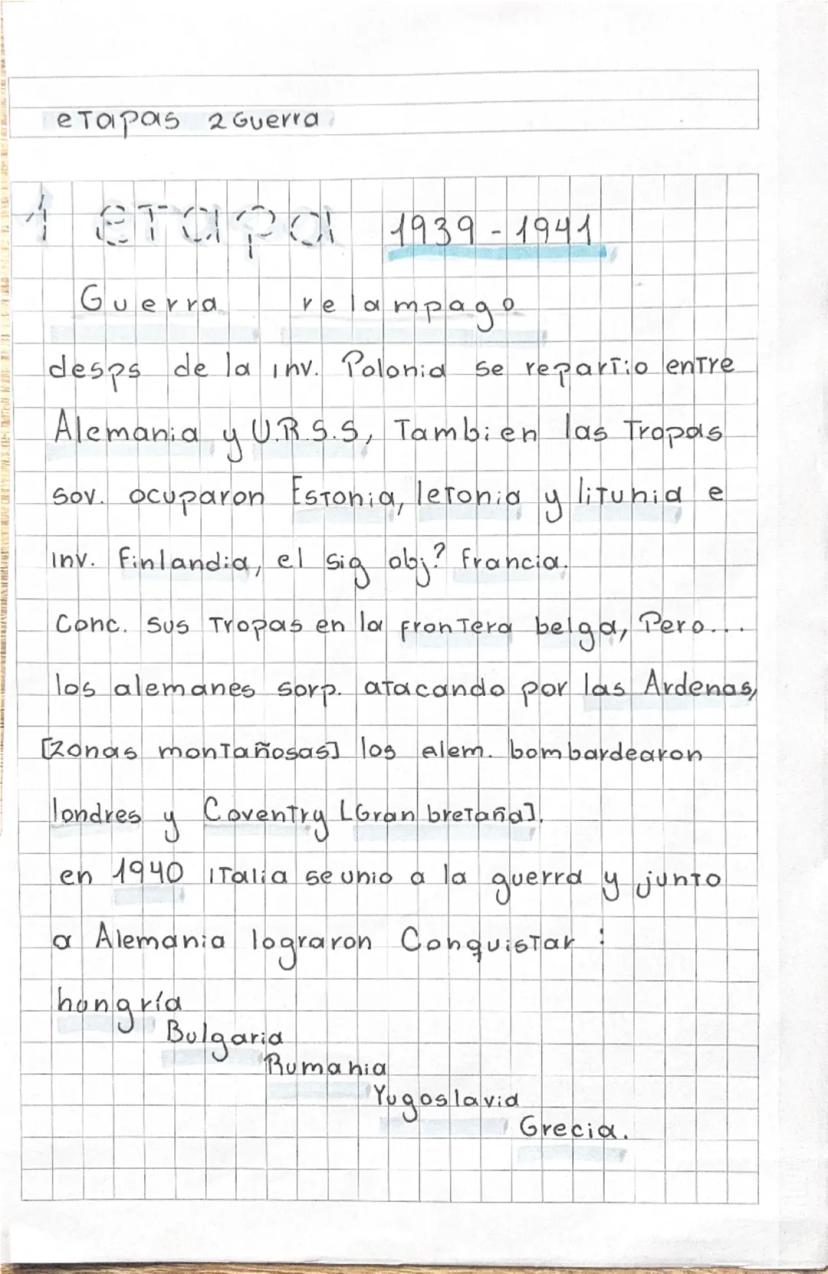 eTapas 2 Guerra
1 eTapa 1939 - 1941
Guerra relampago
desps de la inv. Polonia se reparTio enTre
Alemania y U.R.S.S, Tambien las Tropas
sov. ocuparon EsTonia, leTonia y liTunia e
inv. finlandia, el sig obj? francia.
Conc. sus Tropas en la fronTera belga, Pero...
los alemanes sorp. aTacando por las Ardenas,
[zonas monTañosas] los alem. bombardearon
londres y CovenTry [Gran breTaña].
en 1940 iTalia se unio a la guerra y junTo
a Alemania lograron ConquisTar :
hungría
Bulgaria
Rumania
Yugoslavia
Grecia.